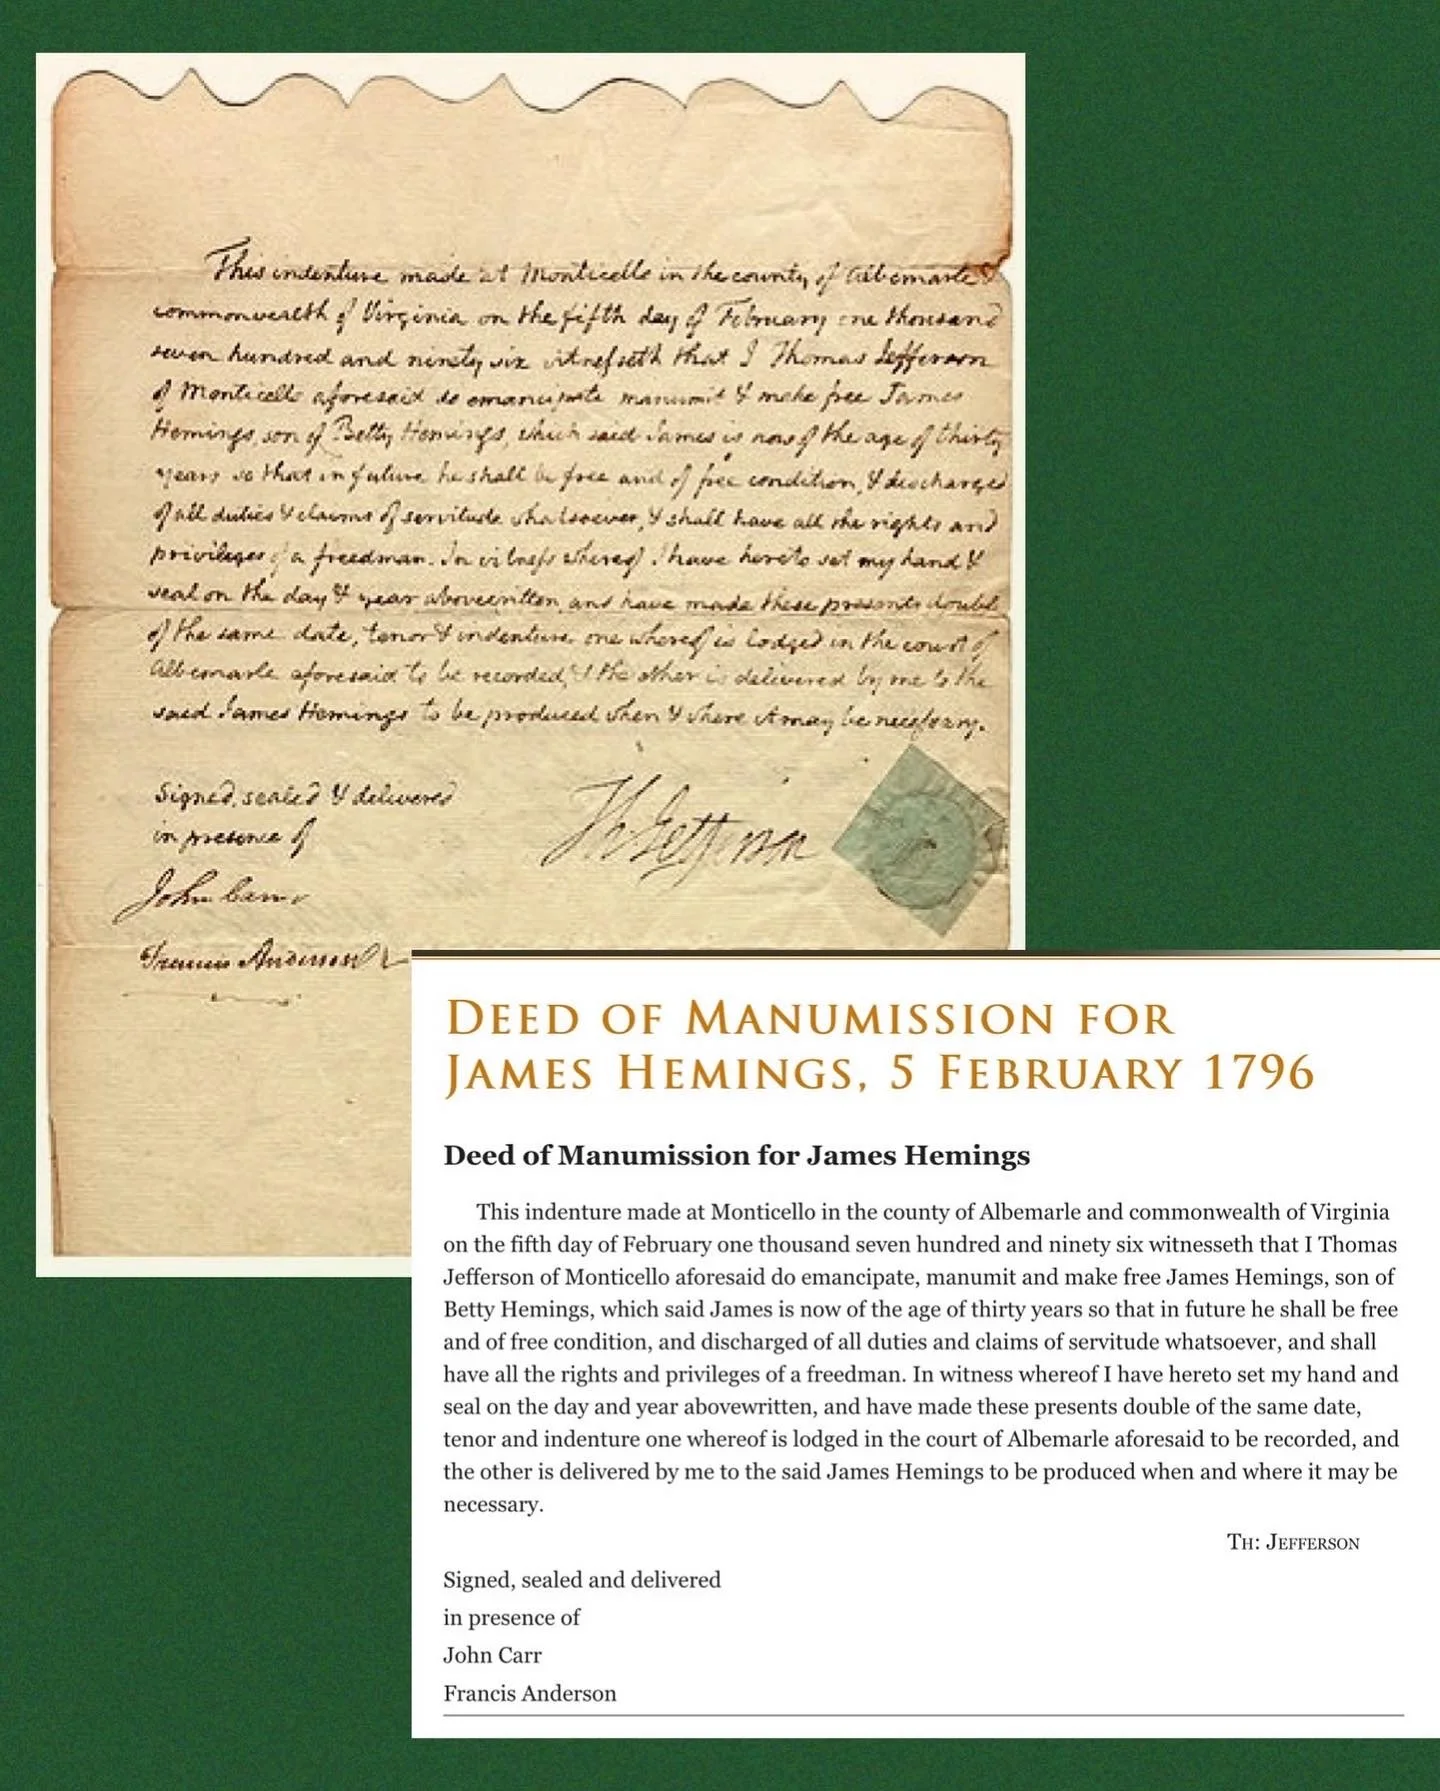 This indenture made at Monticello in the county of Albemarle &
commonwealth of Virginia on the fifth day of February one thousand
seven hundred and ninety six witnesseth that I Thomas Jefferson
of Monticello aforesaid do emancipate manumit & make free James
Hemings, son of Betty Hemings, which said James is now of the age of thirty
years so that in future he shall be free and of free condition, & discharged
of all duties & claims of servitude whatsoever, & shall have all the rights and
privileges of a freedman. In witness whereof I have hereto set my hand &
seal on the day & year abovewritten, and have made these presents double
of the same date, tenor & indenture one whereof is lodged in the court of
Albemarle aforesaid to be recorded, & the other is delivered by me to the
said James Hemings to be produced when & where it may be necessary.
Signed, sealed & delivered
in presence of
Th Jefferson
John Carr
Francis Anderson
DEED OF MANUMISSION FOR
JAMES HEMINGS, 5 FEBRUARY 1796
Deed of Manumission for James Hemings
This indenture made at Monticello in the county of Albemarle and commonwealth of Virginia
on the fifth day of February one thousand seven hundred and ninety six witnesseth that I Thomas
Jefferson of Monticello aforesaid do emancipate, manumit and make free James Hemings, son of
Betty Hemings, which said James is now of the age of thirty years so that in future he shall be free
and of free condition, and discharged of all duties and claims of servitude whatsoever, and shall
have all the rights and privileges of a freedman. In witness whereof I have hereto set my hand and
seal on the day and year abovewritten, and have made these presents double of the same date,
tenor and indenture one whereof is lodged in the court of Albemarle aforesaid to be recorded, and
the other is delivered by me to the said James Hemings to be produced when and where it may be
necessary.
TH: JEFFERSON
Signed, sealed and delivered
in presence of
John Carr
Francis Anderson